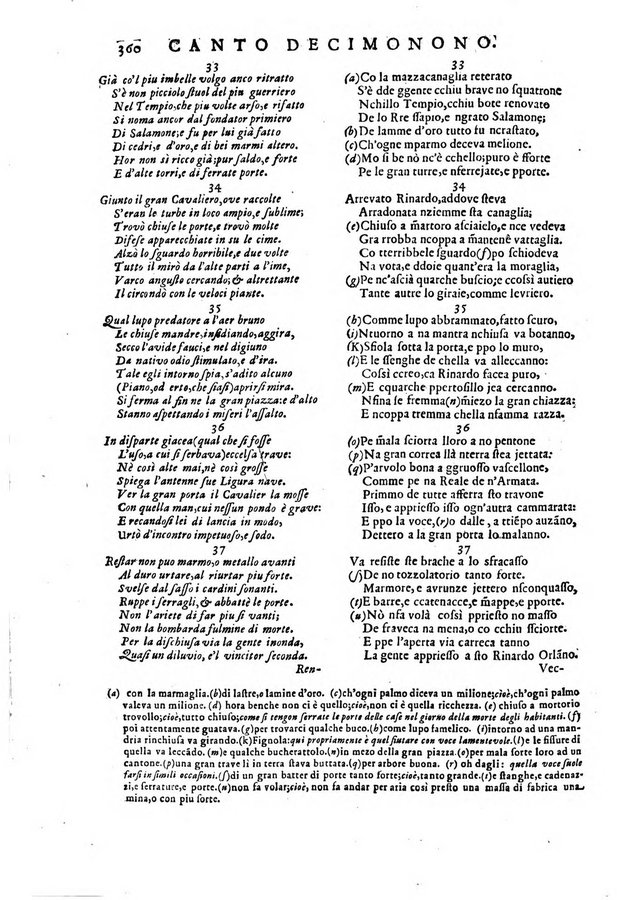 360 CANTO DECIMONONO.
33
Già co'l piu imbelle volgo anco ritratto
S'è non picciolo stuol del piu guerriero
Nel Tempio, che piu volte arso, e rifatto
Si noma ancor dal fondator primiero
Di Salamone; e fu per lui già fatto
Di cedri, e d'oro, e di bei marmi altero.
Hor non sì ricco già; pur saldo, e forte
E d'alte torri, e di ferrate porte.
34
Giunto il gran Cavaliero, ove raccolte
S'eran le turbe in loco ampio, e sublime;
Trovò chiuse le porte, e trovò molte
Difese apparecchiate in su le cime.
Alzò lo sguardo horribile, e due volte
Tutto il mirò da l'alte parti a l'ime,
Varco angusto cercando; & altrettante
Il circondò con le veloci piante.
35
Qual lupo predatore a l'aer bruno
Le chiuse mandre, insidiando, aggira,
Secco l'avide fauci, e nel digiuno
Da nativo odio stimulato, e d'ira.
Tale egli intorno spia, s'adito alcuno
(Piano, od erto, che siasi) aprir si mira.
Si ferma al fin ne la gran piazza: e d'alto
Stanno aspettando i miseri l'assalto.
36
In disparte giacea (qual che si fosse
L'uso, a cui si serbava) eccelsa trave:
Nè così alte mai, nè così grosse
Spiega l'antenne sue Ligura nave.
Ver la gran porta il Cavalier la mosse
Con quella man, cui nessun pondo è grave:
E recandosi lei di lancia in modo,
Urtò d'incontro impetuoso, e sodo.
37
Restar non puo marmo, o metallo avanti
Al duro urtare, al riurtar piu forte.
Svelse dal sasso i cardini sonanti.
Ruppe i serragli, & abbattè le porte.
Non l'ariete di far piu si vanti;
Non la bombarda fulmine di morte.
Per la dischiusa via la gente inonda,
Quasi un diluvio, e'l vincitor seconda.
Ren-
33
(a) Co la mazzacanaglia reterato
S'è dde ggente cchiu brave no squatrone
Nchillo Tempio, cchiu bote renovato
De lo Rre ssapio, e ngrato Salamone;
(b) De lamme d'oro tutto fu ncrastato,
(c) Ch'ogne mparmo deceva melione.
(d) Mo sì be nò nc'è cchello; puro è fforte
Pe le gran turre, e nferrejate, e pporte.
34
Arrevato Rinardo, addove steva
Arradonata nziemme sta canaglia;
(e) Chiuso a m̃artoro asciaielo, e nce vedeva
Gra rrobba ncoppa a m̃antenè vattaglia.
Co tterribbele sguardo (f) po schiodeva
Na vota, e ddoie quant'era la moraglia,
(g) Pe nc'ascià quarche buscio; e ccossì autiero
Tante autre lo giraie, comme levriero.
35
(h) Comme lupo abbrammato, fatto scuro,
(i) Ntuorno a na mantra nchiusa va botanno,
(K) Sfiola sotta la porta, e ppo lo muro,
(l) E le ssenghe de chella va alleccanno:
Cossì ccreo, ca Rinardo facea puro,
(m) E cquarche ppertosillo jea cercanno.
Nfina se fremma (n) miezo la gran chiazza:
E ncoppa tremma chella nfamma razza.
36
(o) Pe m̃ala sciorta lloro a no pentone
(p) Na gran correa llà nterra stea jettata:
(q) P'arvolo bona a gguosso vascellone,
Comme pe na Reale de n'Armata.
Primmo de tutte afferra sto travone
Isso, e appriesso isso ogn'autra cammarata:
E ppo la voce, (r) o dalle, a tẽpo auzãno,
Dettero a la gran porta lo malanno.
37
Va resiste ste brache a lo sfracasso
(s) De no tozzolatorio tanto forte.
Marmore, e avrunze jettero nsconquasso,
(t) E barre, e ccatenacce, e m̃appe, e pporte.
(u) No nsa volà cossì ppriesto no masso
De fraveca na mena, o co cchiu sciorte.
E ppe l'aperta via carreca tanno
La gente appriesso a sto Rinardo Orlãno.
Vec-
(a) con la marmaglia. (b) di lastre, o lamine d'oro. (c) ch'ogni palmo diceva un milione; cioè, ch'ogni palmo
valeva un milione. (d) hora benche non ci è quello, cioè, non ci è quella ricchezza. (e) chiuso a mortorio
trovollo; cioè, tutto chiuso; come si tengon serrate le porte delle case nel giorno della morte degli habitanti. (f)
poi attentamente guatava, (g) per trovarci qualche buco. (h) come lupo famelico. (i) intorno ad una man-
dria rinchiusa va girando. (k) Fignola: qui propriamente è quel fiutare con voce lamentevole. (l) e le fissure di
quella va leccãdo. (m) e qualche bucherattolo. (n) in mezo della gran piazza. (o) per mala sorte loro ad un
cantone. (p) una gran trave lì in terra stava buttata. (q) per arbore buona. (r) oh dagli: quella voce suole
farsi in simili occasioni. (s) di un gran batter di porte tanto forte; cioè, tanto grande. (t) e stanghe, e cadenaz-
zi, e serrature, e porte. (u) non sa volar; cioè, non sa andar per aria così presto una massa di fabrica una
mina, o con piu sorte.